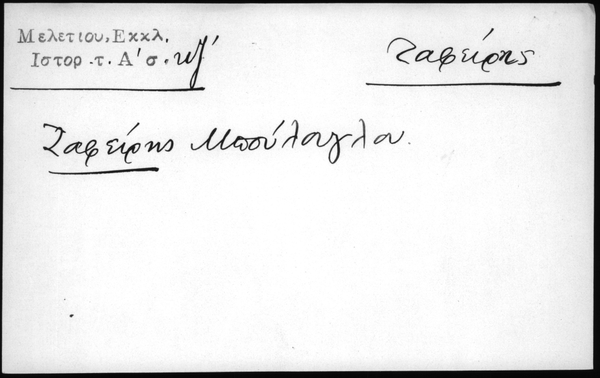 Μελετίου, Εκκλ.
Ιστορ. τ. Α' σ. κζ'
Ζαφείρης
Ζαφείρης Μπούλογλου.